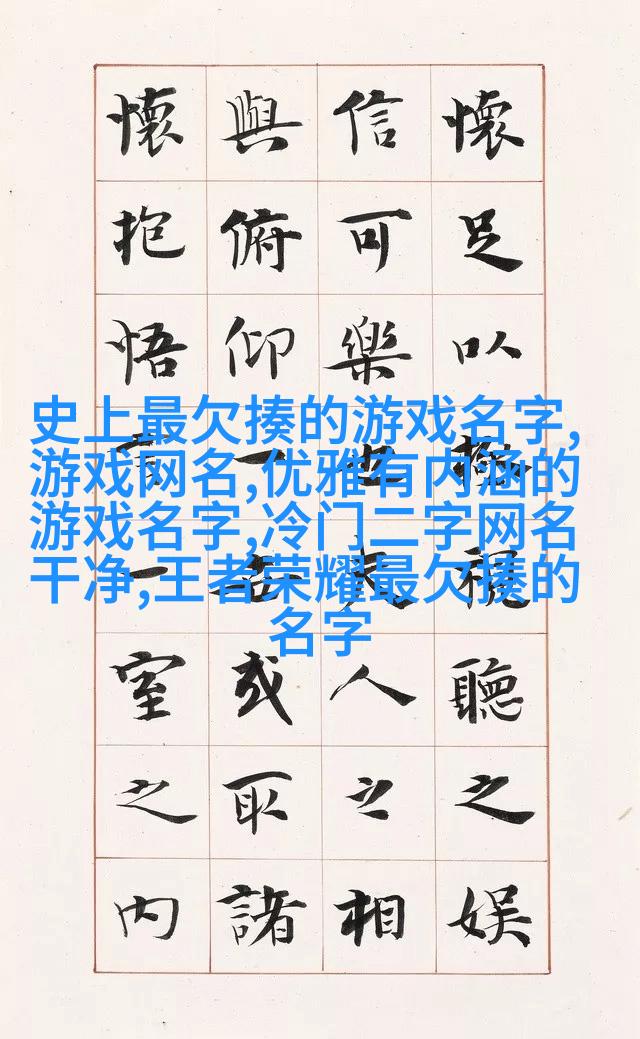 懷足以極視聽之娛
信可樂也夫人之相
與俯仰一世或取諸
懷抱悟言一室之內
史上最欠揍的游戏名字,
游戏网名,优雅有内涵的
游戏名字,冷门二字网名
干净,王者荣耀最欠揍的
名字